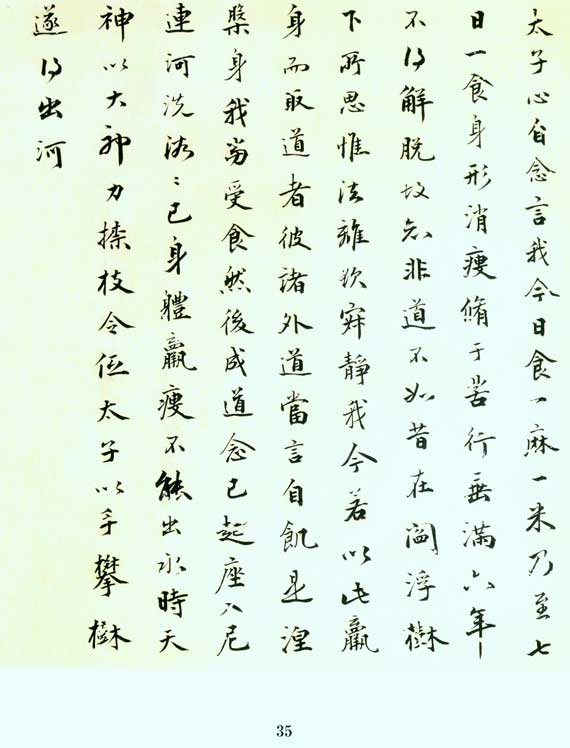 太子心自念言我今日食一麻一米乃至七
日一食身形消瘦脩于苦行垂滿六年
不得解脫故知非道不如昔在閻浮樹
下所思惟法離欲寂靜我今若以此羸
身而取道者彼諸外道當言自飢是涅
槃身我當受食然後成道念已起座入尼
連河洗浴〻已身體羸瘦不能出水時天
神以大神力捺枝令低太子以手攀樹
遂得出河
35